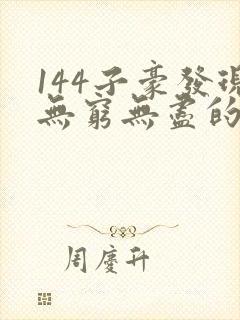 144子豪發現
無窮無盡的
周慶升